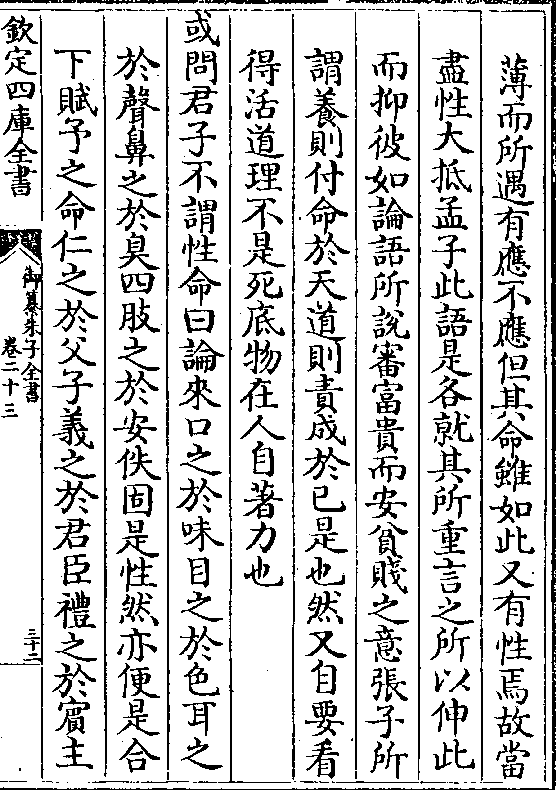 薄而所遇有應不應但其命雖如此又有性焉故當
盡性大抵孟子此語是各就其所重言之所以伸此
而抑彼如論語所說審富貴而安貧賤之意張子所
謂養則付命於天道則責成於己是也然又自要看
得活道理不是死底物在人自著力也
或問君子不謂性命曰論來口之於味目之於色耳之
於聲鼻之於臭四肢之於安佚固是性然亦便是合
下賦予之命仁之於父子義之於君臣禮之於賓主
欽定四庫全書
御纂朱子全書
卷二十三
三十二